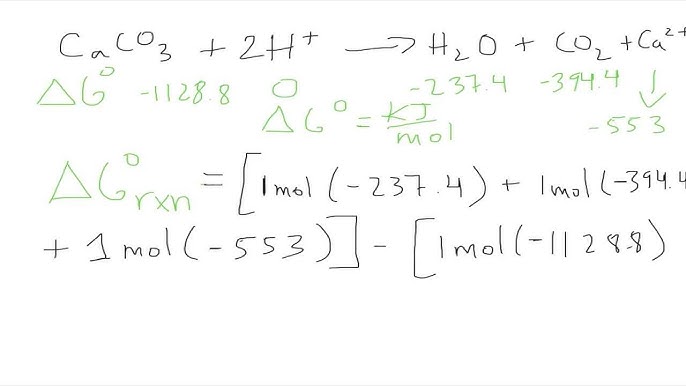 CaCO₃ + 2H⁺ → H₂O + CO₂ + Ca²⁺
ΔG° -1128.8 0 -237.4 -394.4 ↓
ΔG° = KJ/mol -553
ΔG°rxn = [1mol(-237.4) + 1mol(-394.4
+ 1mol(-553)] - [1mol(-1128.8)